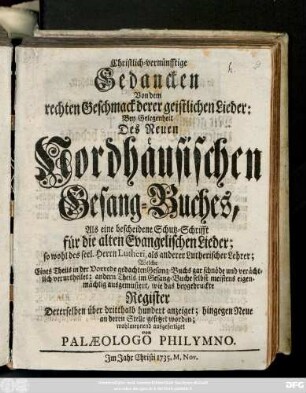 Christlich-vernünfftige
Gedancken
Von dem
rechten Geschmack derer geistlichen Lieder:
Bey Gelegenheit
Des Neuen
Nordhäusischen
Gesang-Buches,
Als eine bescheidene Schutz-Schrifft
für die alten Evangelischen Lieder;
so wohl des seel. Herrn Lutheri, als anderer Lutherischer Lehrer;
Welche
Eines Theils in der Vorrede gedachten Gesang-Buchs gar schnöde und verächt-
lich verurtheilet; andern Theils im Gesang-Buche selbst meistens eigen-
mächtig ausgemustert, wie das beygedruckte
Register
Dererselben über dritthalb hundert anzeiget; hingegen Neue
an deren Stelle gesetzet worden;
wohlmeynend ausgefertiget
von
PALÆOLOGO PHILYMNO.
Im Jahr Christi 1735. M. Nov.